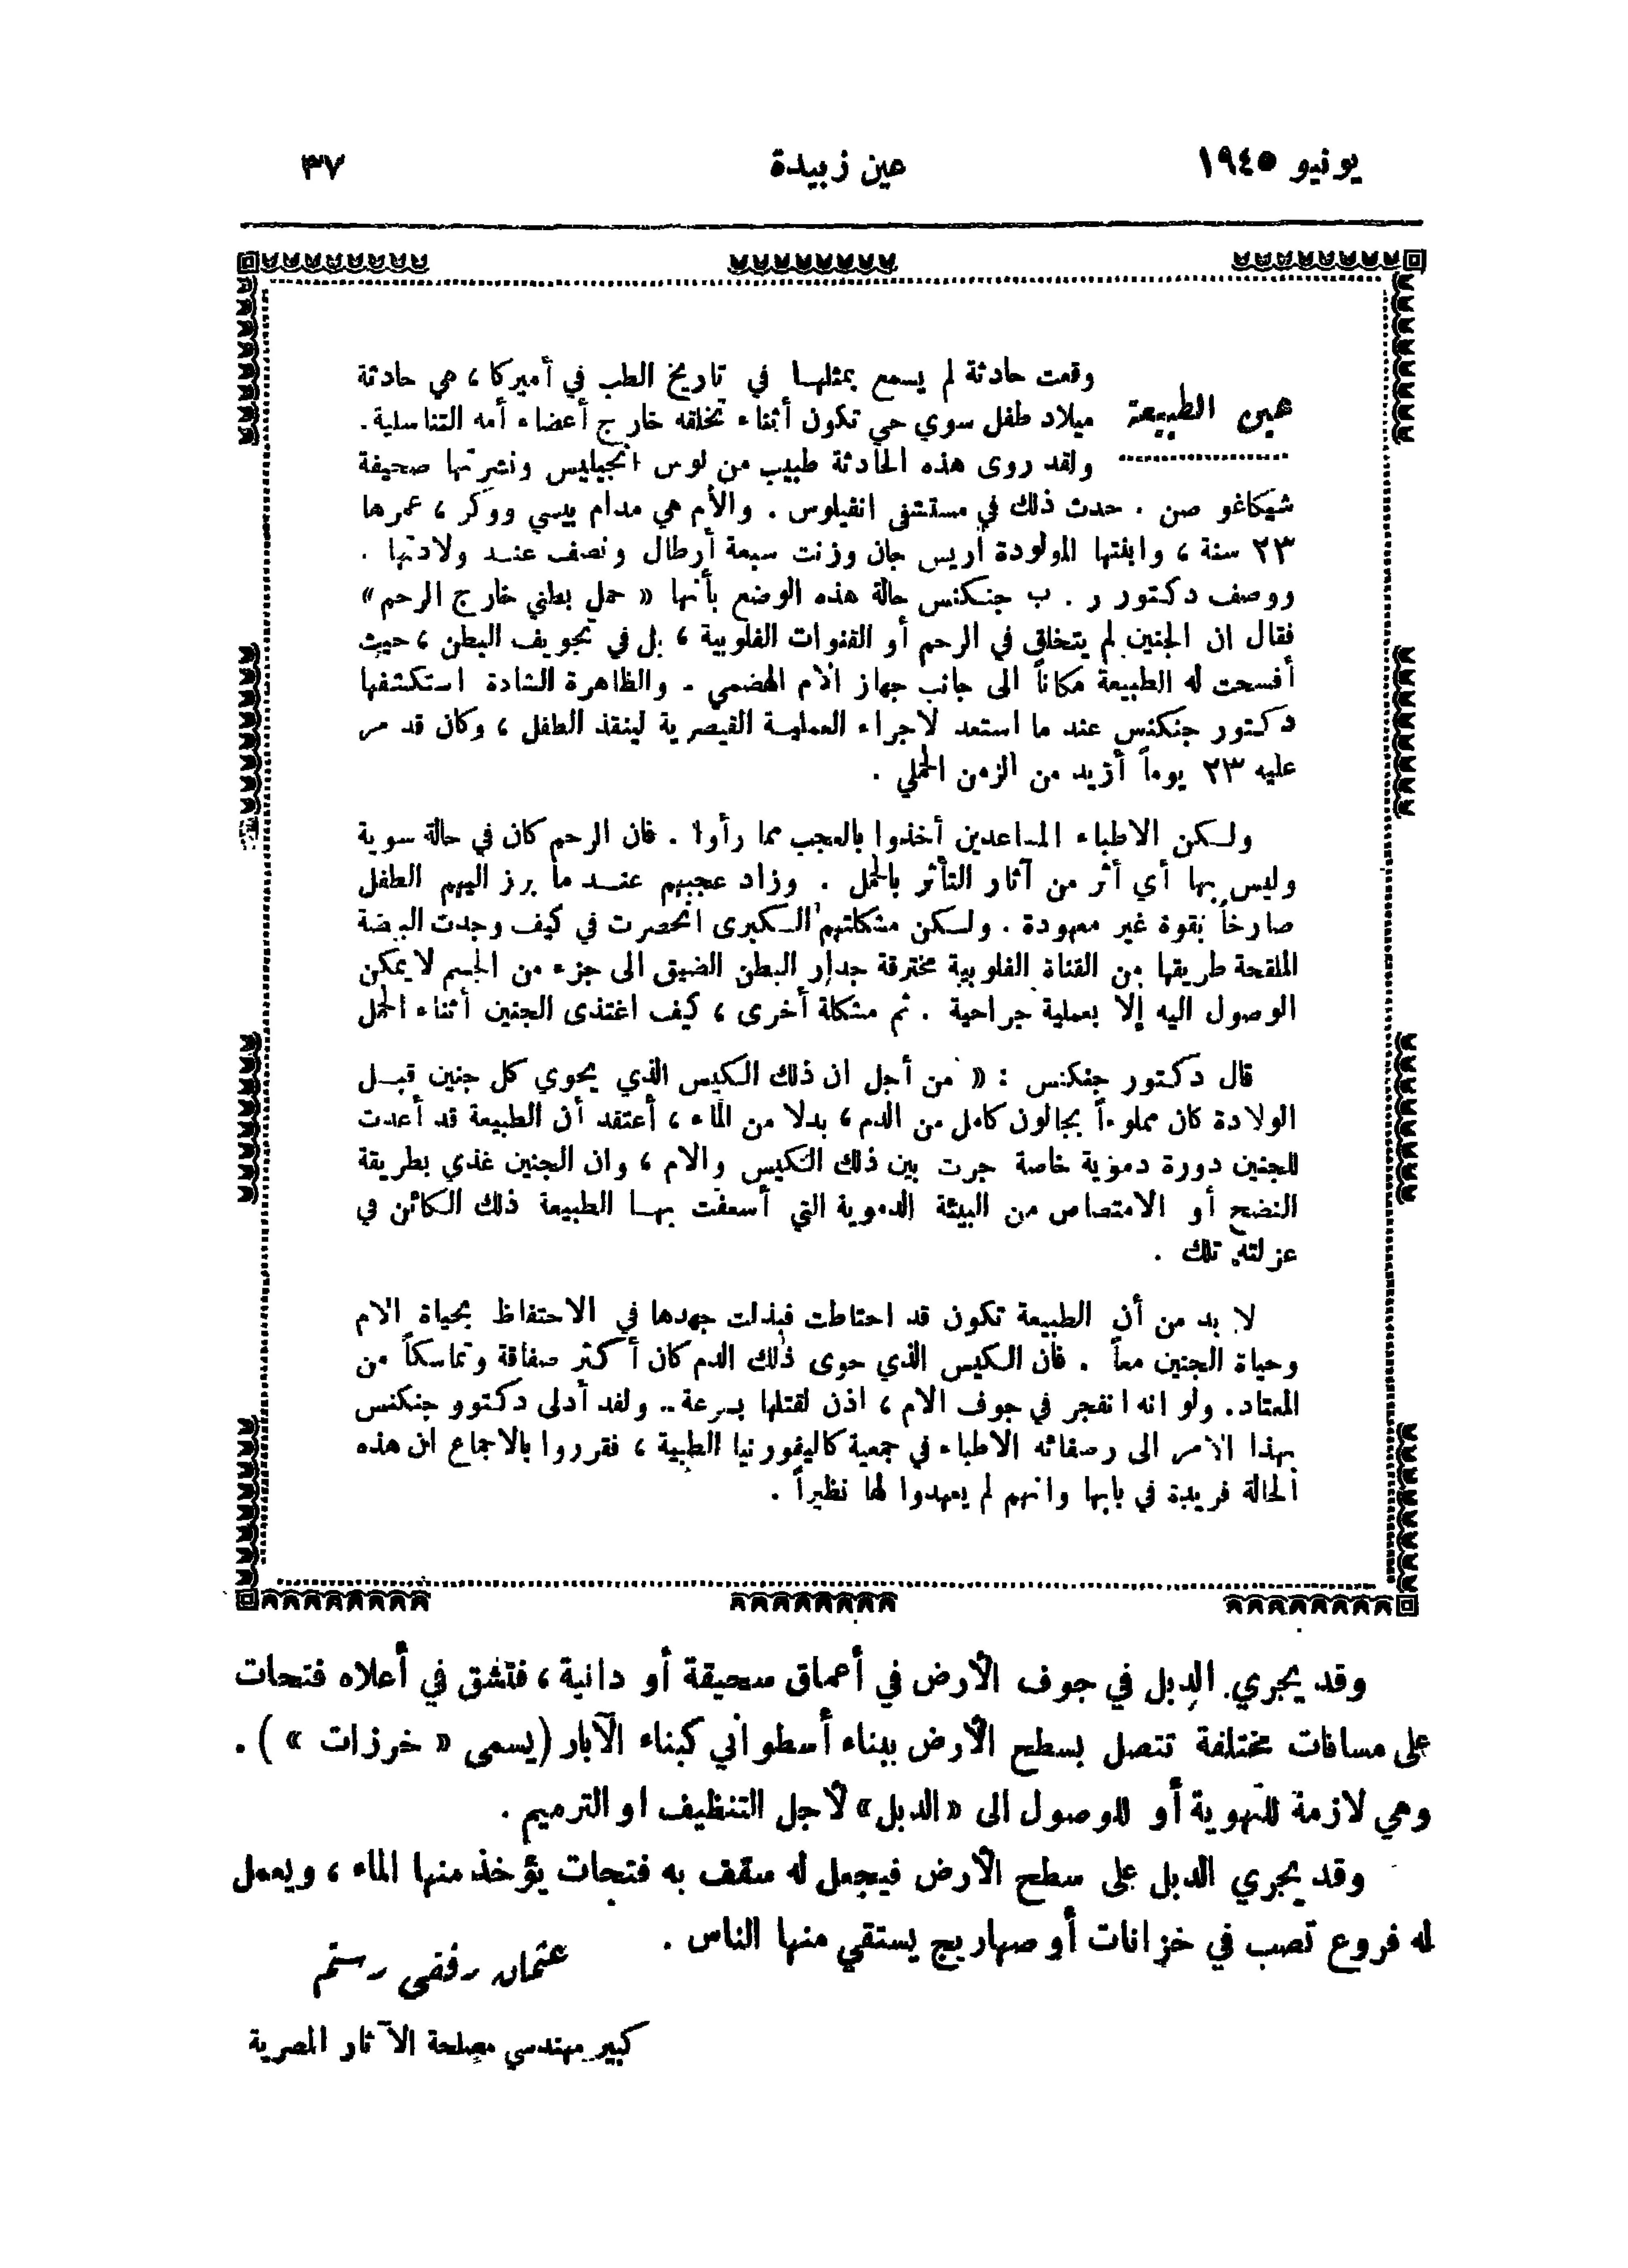 يونيو ١٩٤٥
عين زبيدة
٣٧
عين الطبيعة
وقعت حادثة لم يسمع بمثلها في تاريخ الطب في أميركا، هي حادثة
ميلاد طفل سوي حي تكون أثناء تخلقه خارج أعضاء أمه التناسلية.
ولقد روى هذه الحادثة طبيب من لوس انجيليس ونشرتها صحيفة
شيكاغو صن . حدث ذلك في مستشفى انفيلوس . والأم هي مدام بيسي ووكر ، عمرها
٢٣ سنة ، وابنتها المولودة أريس جان وزنت سبعة أرطال ونصف عند ولادتها .
ووصف دكتور ر . ب جنكنس حالة هذه الوضع بأنها « حمل بطني خارج الرحم»
فقال ان الجنين لم يتخلق في الرحم أو القنوات الفلوبية ، بل في تجويف البطن ، حيث
أفسحت له الطبيعة مكاناً الى جانب جهاز الأم الهضمي - والظاهرة الشاذة استكشفها
دكتور جنكنس عند ما استعد لاجراء العملية القيصرية لينقذ الطفل ، وكان قد مر
عليه ٢٣ يوماً أزيد من الزمن الحملي .
ولكن الاطباء المساعدين أخذوا بالعجب مما رأوا . فان الرحم كان في حالة سوية
وليس بها أي أثر من آثار التأثر بالحمل . وزاد عجبهم عند ما برز اليهم الطفل
صارخاً بقوة غير معهودة . ولكن مشكلتهم الكبرى انحصرت في كيف وجدت البيضة
الملقحة طريقها من القناة الفلوبية مخترقة جدار البطن الضيق الى جزء من الجسم لا يمكن
الوصول اليه إلا بعملية جراحية . ثم مشكلة أخرى ، كيف اغتذى الجنين أثناء الحمل
قال دكتور جنكنس : « من أجل ان ذلك الكيس الذي يحوي كل جنين قبل
الولادة كان مملوءاً بجالون كامل من الدم ، بدلا من الماء ، أعتقد أن الطبيعة قد أعدت
للجنين دورة دموية خاصة جرت بين ذلك الكيس والام ، وان الجنين غذي بطريقة
النضح أو الامتصاص من البيئة الدموية التي أسعفت بها الطبيعة ذلك الكائن في
عزلته تلك .
لا بد من أن الطبيعة تكون قد احتاطت فبذلت جهدها في الاحتفاظ بحياة الام
وحياة الجنين معاً . فان الكيس الذي حوى ذلك الدم كان أكثر صفاقة وتماسكاً من
المعتاد. ولو انه انفجر في جوف الام ، اذن لقتلها بسرعة .. ولقد أدلى دكتوو جنكنس
بهذا الأمر الى رصفائه الاطباء في جمعية كاليفورنيا الطبية ، فقرروا بالاجماع ان هذه
الحالة فريدة في بابها وانهم لم يعهدوا لها نظيراً .
وقد يجري الدبل في جوف الأرض في أعماق سحيقة أو دانية ، فتشق في أعلاه فتحات
على مسافات مختلفة تتصل بسطح الأرض ببناء أسطواني كبناء الآبار (يسمى « خرزات » ) .
وهي لازمة للتهوية أو للوصول الى «الدبل» لأجل التنظيف او الترميم .
وقد يجري الدبل على سطح الأرض فيجعل له سقف به فتحات يؤخذ منها الماء ، ويعمل
له فروع تصب في خزانات أو صهاريج يستقي منها الناس .
عثمان رفقى رستم
كبير مهندسي مصلحة الآثار المصرية